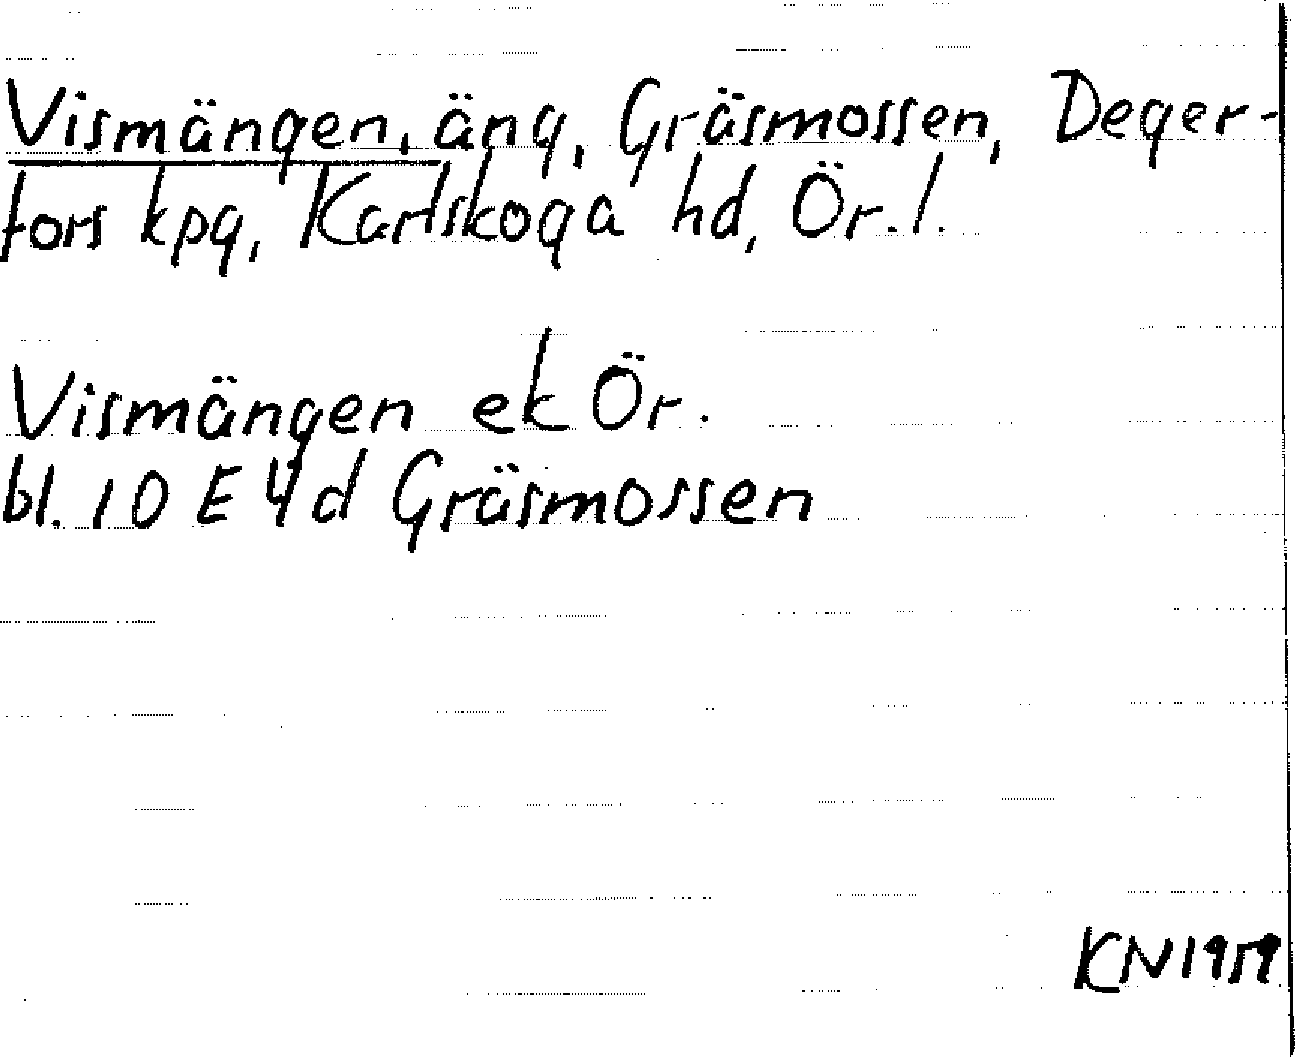 Vismängen, äng, Gräsmossen, Deger-
fors kpg, Karlskoga hd, Ör. l.
Vismängen ek Ör.
bl. 10 E 4d Gräsmossen
KN 1959